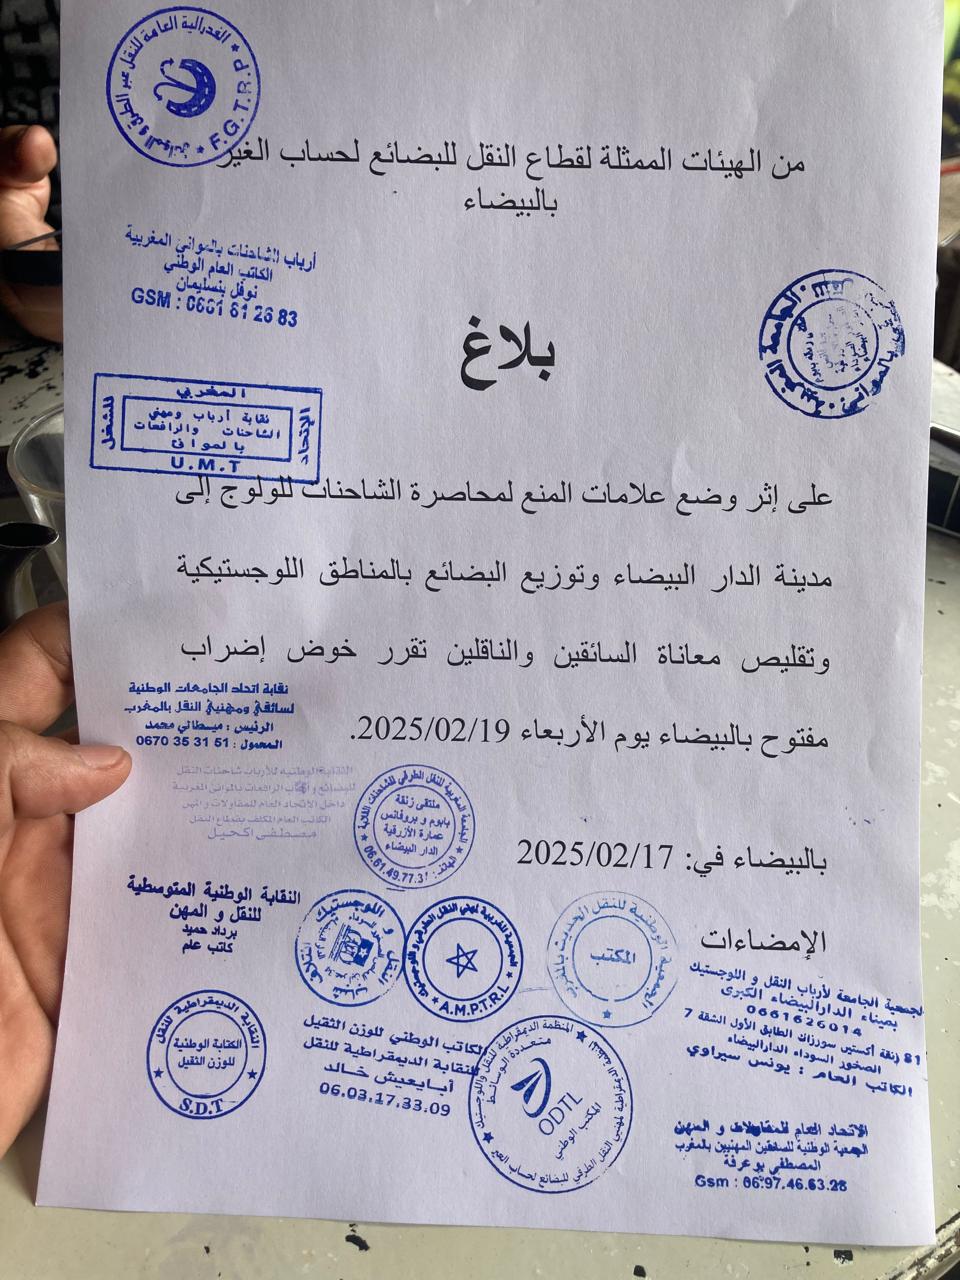 الفدرالية العامة للنقل عبر الطرق و الموانئ
F.G.T.R.P
من الهيئات الممثلة لقطاع النقل للبضائع لحساب الغير
بالبيضاء
أرباب الشاحنات بالموانئ المغربية
الكاتب العام الوطني
نوفل بنسليمان
GSM : 0661 61 26 83
بلاغ
الجامعة المغربية
المغربي
الإتحاد
للشغل
نقابة أرباب ومهني
الشاحنات والرافعات
بالموانئ
U.M.T
على إثر وضع علامات المنع لمحاصرة الشاحنات للولوج إلى
مدينة الدار البيضاء وتوزيع البضائع بالمناطق اللوجستيكية
وتقليص معاناة السائقين والناقلين تقرر خوض إضراب
مفتوح بالبيضاء يوم الأربعاء 2025/02/19.
نقابة اتحاد الجامعات الوطنية
لسائقي ومهنيي النقل بالمغرب
الرئيس : ميسطالي محمد
المحمول : 0670 35 31 51
النقابة الوطنية لأرباب شاحنات النقل
للبضائع و الرافعات بالموانئ المغربية
داخل الاتحاد العام للمقاولات والمهن
الكاتب العام المكلف بقطاع النقل
مصطفى اكحيل
الجامعة المغربية للنقل الطرقي للشاحنات
ملتقى زنقة
بابوم و بروفانس
عمارة الأزرقية
الدار البيضاء
بالبيضاء في: 2025/02/17
النقابة الوطنية المتوسطية
للنقل و المهن
برداد حميد
كاتب عام
النقل و اللوجستيك
الجمعية المغربية لمهني النقل الطرقي و اللوجستيك
A.M.P.T.R.L
الجمعية الوطنية للنقل الحديث بالمغرب
المكتب
الإمضاءات
الجمعية الجامعة لأرباب النقل و اللوجستيك
بميناء الدارالبيضاء الكبرى
0661626014
81 زنقة أكستين سورزاك الطابق الأول الشقة 7
الصخور السوداء الدارالبيضاء
الكاتب العام : يونس سيراوي
النقابة الديمقراطية للنقل
الكتابة الوطنية
للوزن الثقيل
S.D.T
الكاتب الوطني للوزن الثقيل
النقابة الديمقراطية للنقل
أبايعيش خالد
06.03.17.33.09
المنظمة الديمقراطية للنقل واللوجستيك
متعددة الوسائط
ODTL
المكتب الوطني
النقابة الديمقراطية لمهنيي النقل الطرقي للبضائع لحساب الغير
الاتحاد العام للمقاولات و المهن
الجمعية الوطنية للسائقين المهنيين بالمغرب
المصطفى بوعرفة
Gsm : 06.97.46.63.28